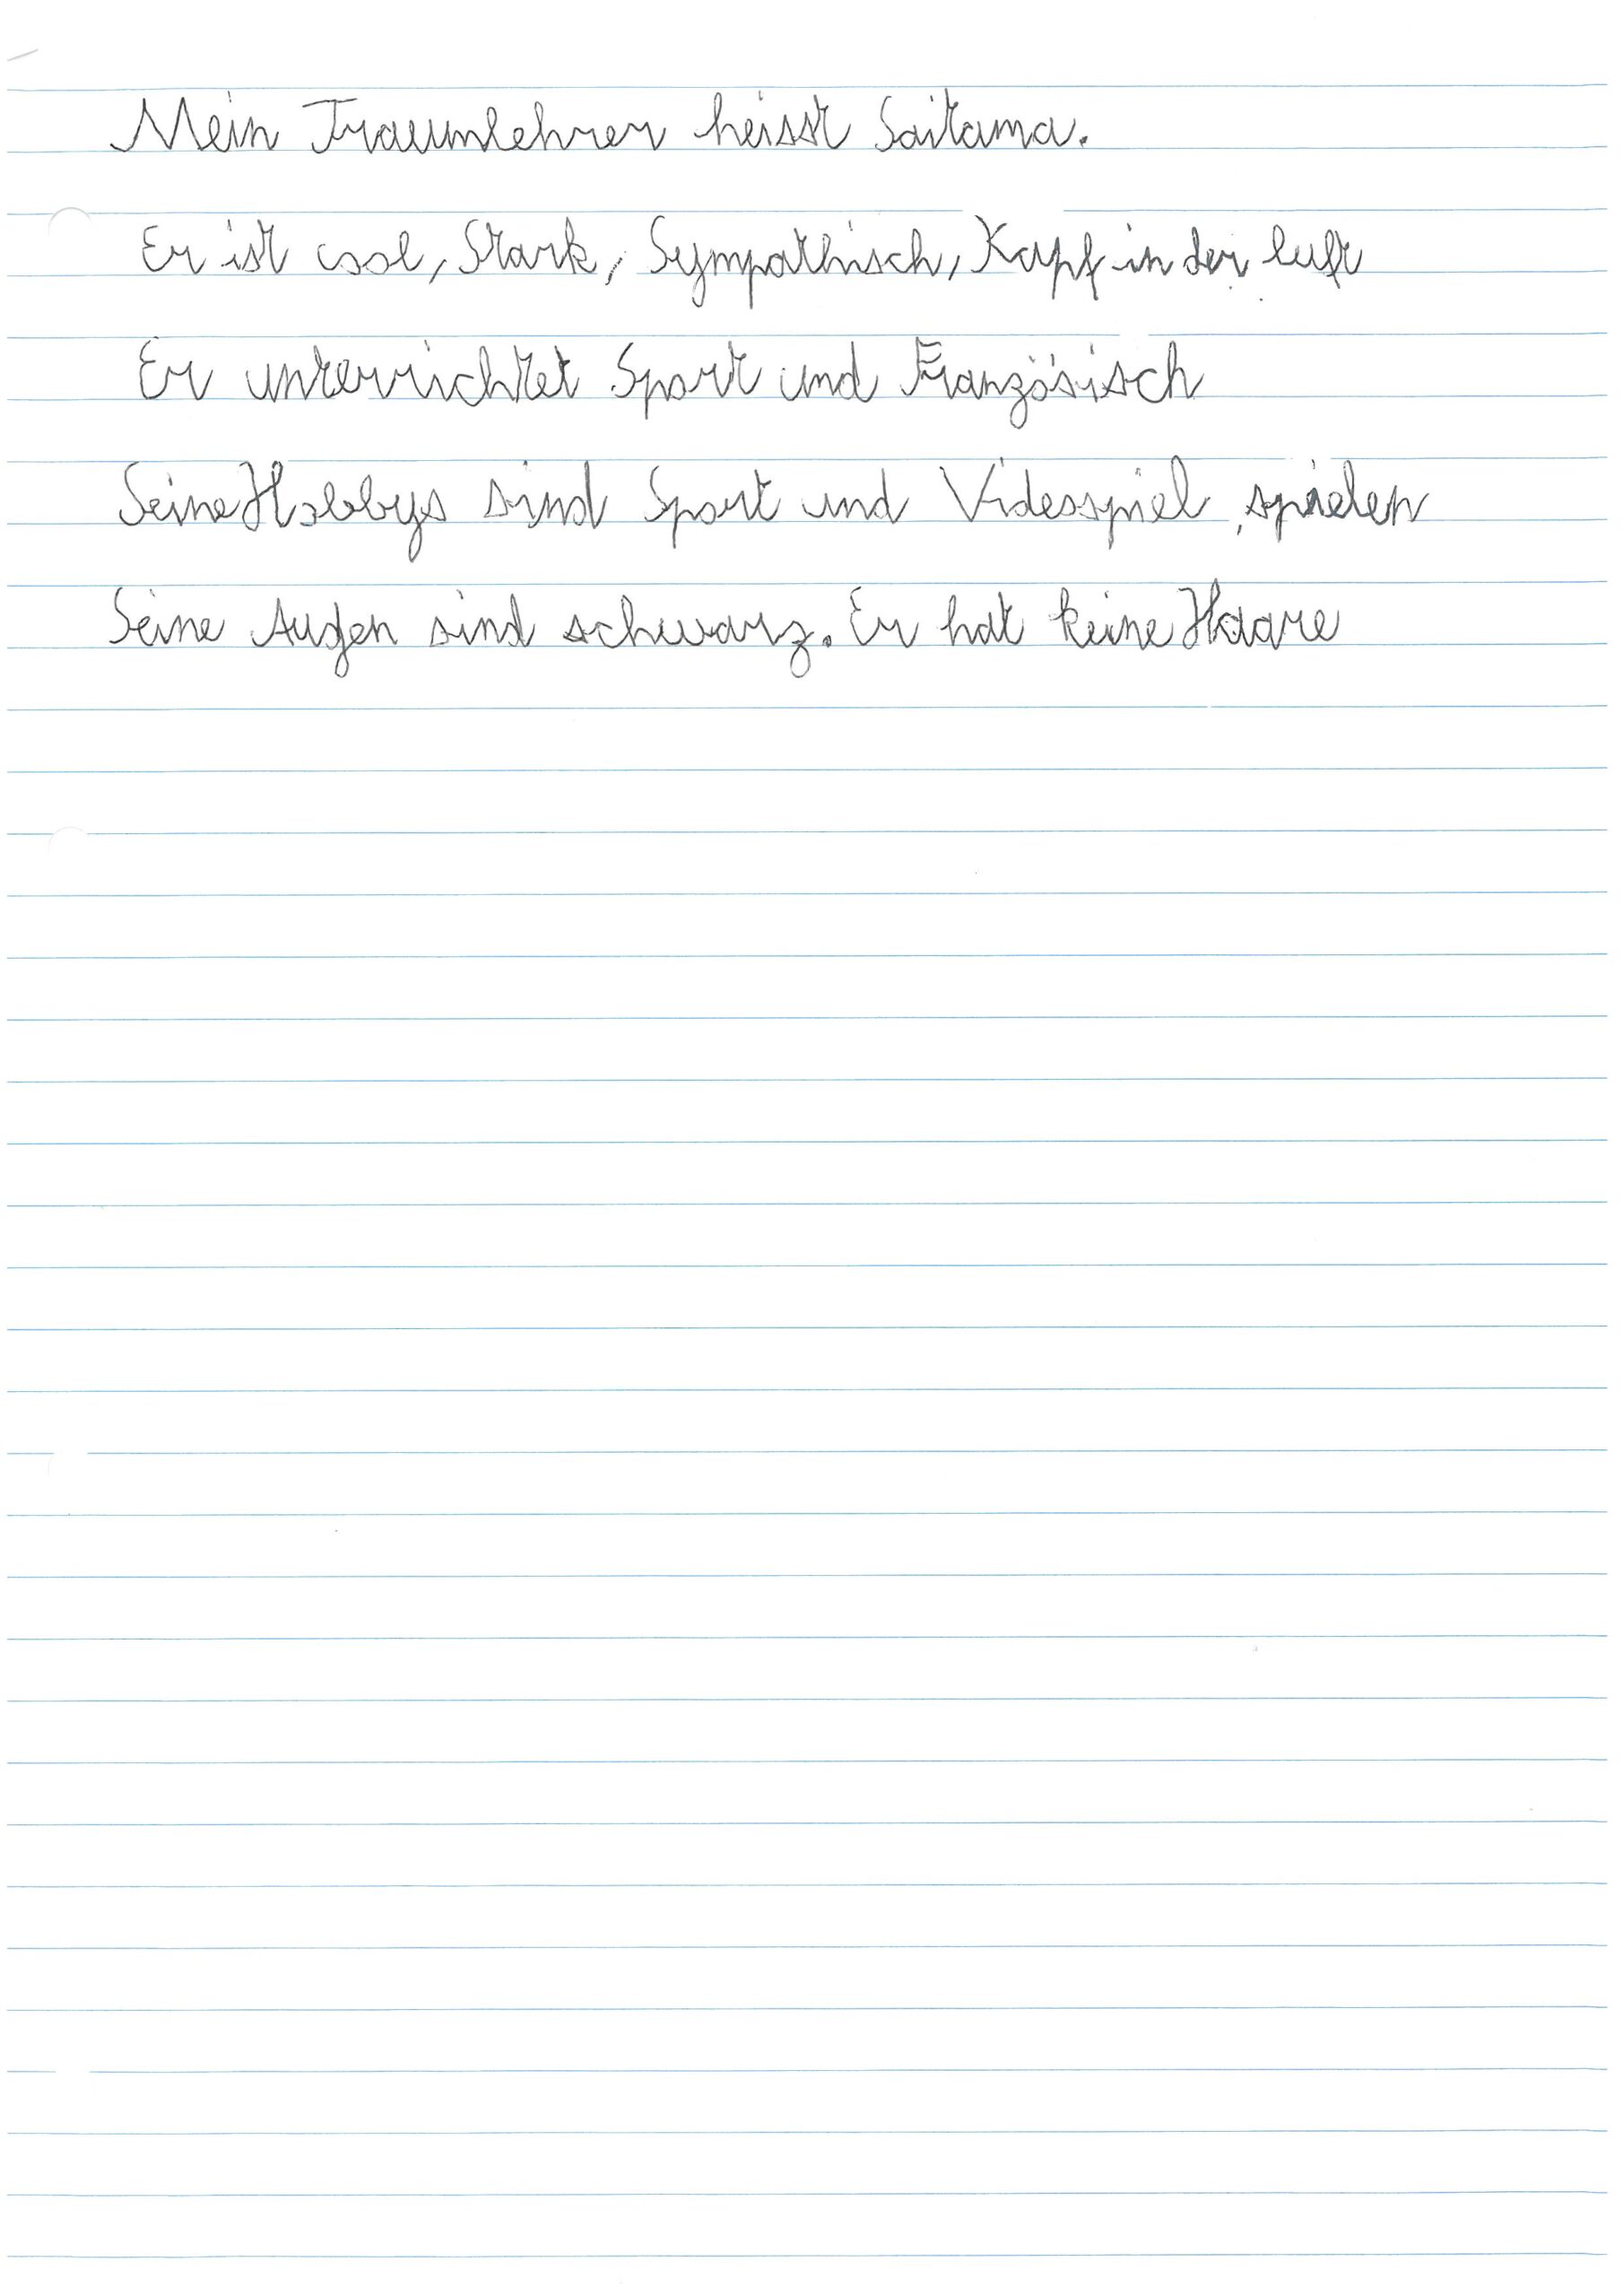 Mein Traumlehrer heisst Saitama.
Er ist cool, Stark, Sympathisch, Kopf in der luft
Er unterrichtet Sport und Französisch
Seine Hobbys sind Sport und Videospiel spielen
Seine Augen sind schwarz. Er hat keine Haare